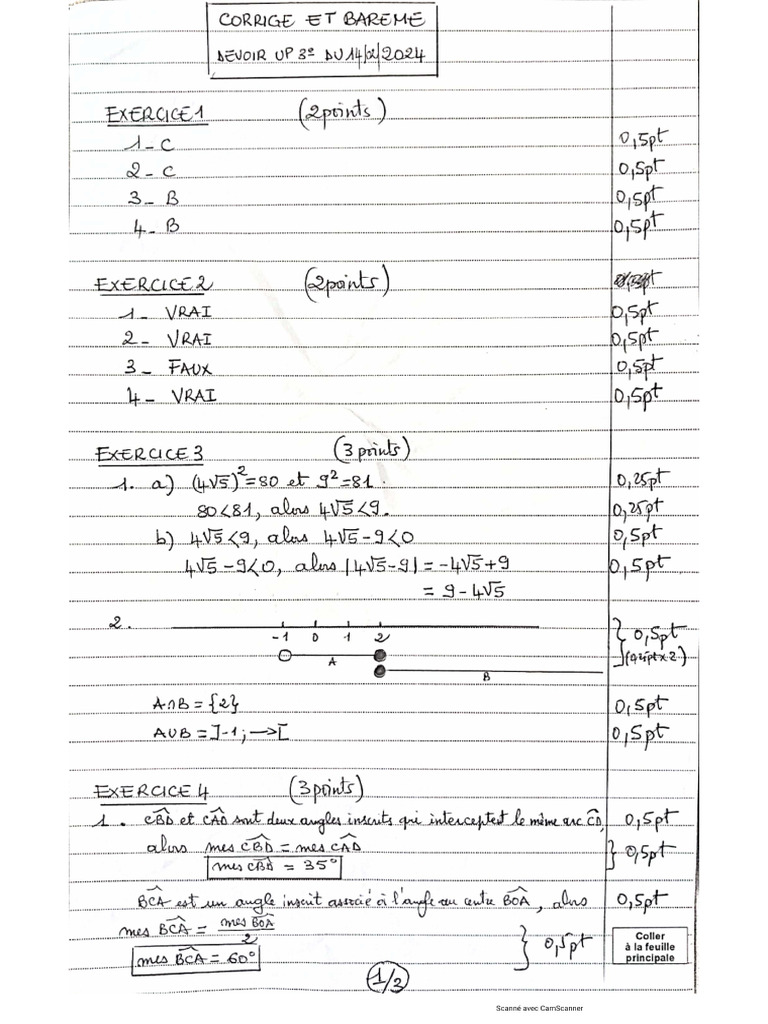 CORRIGE ET BAREME
DEVOIR UP 3e DU 14/2/2024
EXERCICE 1 (2points)
1_ C 0,5pt
2_ C 0,5pt
3_ B 0,5pt
4_ B 0,5pt
EXERCICE 2 (2points)
1_ VRAI 0,5pt
2_ VRAI 0,5pt
3_ FAUX 0,5pt
4_ VRAI 0,5pt
EXERCICE 3 (3 points)
1. a) (4√5)²=80 et 9²=81. 0,25pt
80<81, alors 4√5<9. 0,25pt
b) 4√5<9, alors 4√5-9<0 0,5pt
4√5-9<0, alors |4√5-9| = -4√5+9 0,5pt
= 9-4√5
2. 0,5pt
-1 0 1 2
A (0,25pt x 2)
B
A∩B = {2} 0,5pt
A∪B = ]-1; →[ 0,5pt
EXERCICE 4 (3points)
1. CBD̂ et CAD̂ sont deux angles inscrits qui interceptent le même arc CD̂, 0,5pt
alors mes CBD̂ = mes CAD̂ } 0,5pt
mes CBD̂ = 35°
BCÂ est un angle inscrit associé à l'angle au centre BOÂ, alors 0,5pt
mes BCÂ = mes BOÂ / 2 } 0,5pt
mes BCÂ = 60°
Coller
à la feuille
principale
1/2
Scanné avec CamScanner